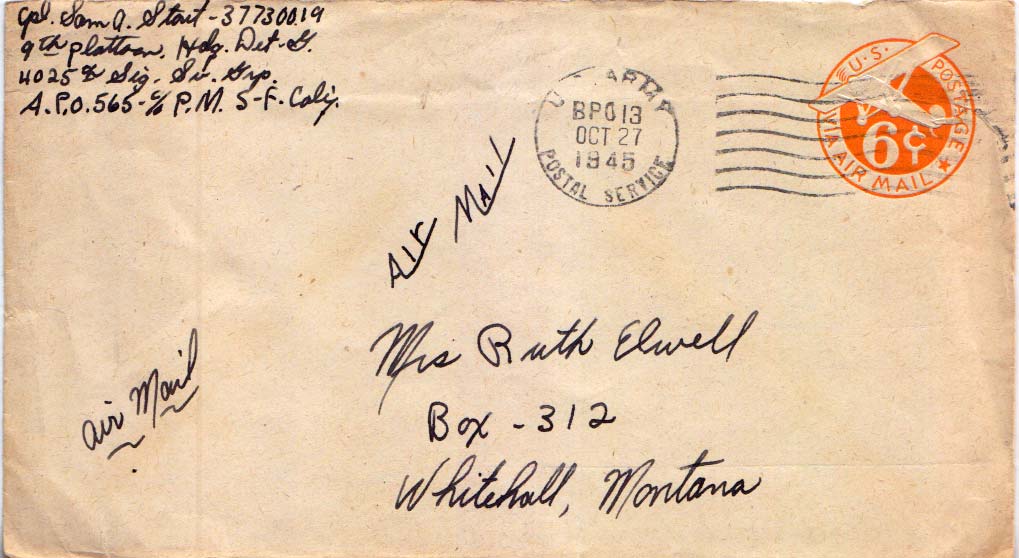 Cpl. Sam A. Start - 37730019
9th plattoon, Hdq. Det-G.
4025th Sig. Sv. Grp.
A.P.O. 565 - c/o P.M. S-F. Calif.
U.S. ARMY
BPO 13
OCT 27
1945
POSTAL SERVICE
U.S. POSTAGE
6¢
VIA AIR MAIL
Air Mail
Mrs Ruth Elwell
Box - 312
Whitehall, Montana
air Mail